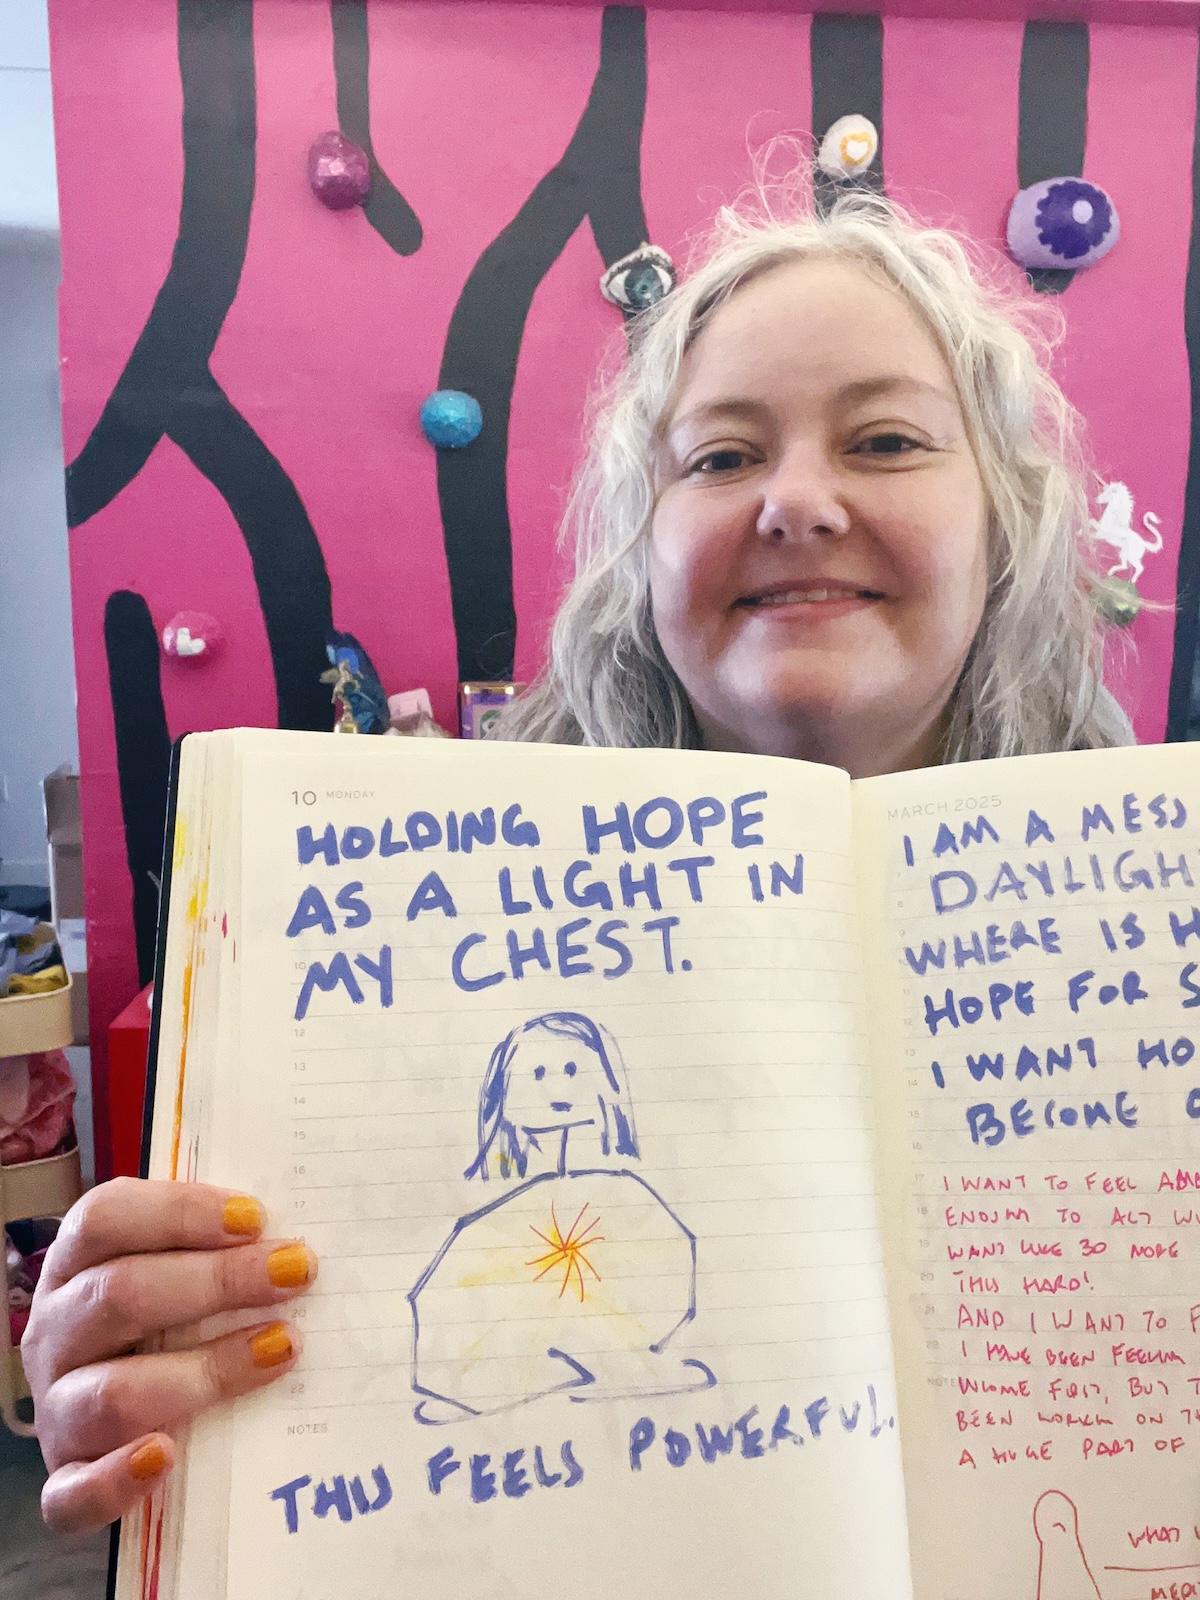 10 MONDAY
HOLDING HOPE
AS A LIGHT IN
MY CHEST.
10
12
13
14
15
16
17
18
20
21
22
NOTES
THIS FEELS POWERFUL.
MARCH 2025
I AM A MESS
DAYLIGH
WHERE IS H
HOPE FOR S
I WANT HO
BECOME
I WANT TO FEEL AM
ENOUGH TO ACT
WANT LIKE 30 MORE
THIS HARD!
AND I WANT TO F
I HAVE BEEN FEELING
NOTES
FIRST, BUT T
BEEN WORKING ON TH
A HUGE PART OF
WHAT
MEDI